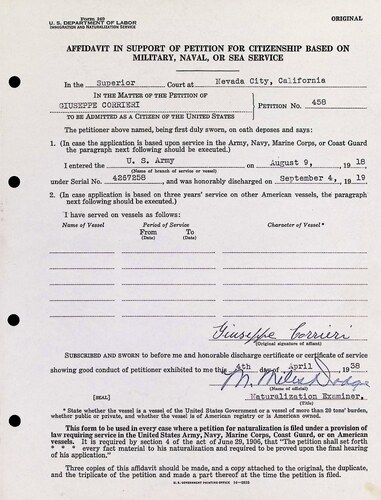 Form 240
U. S. DEPARTMENT OF LABOR
IMMIGRATION AND NATURALIZATION SERVICE
ORIGINAL
AFFIDAVIT IN SUPPORT OF PETITION FOR CITIZENSHIP BASED ON
MILITARY, NAVAL, OR SEA SERVICE
In the Superior Court at Nevada City, California
IN THE MATTER OF THE PETITION OF
GIUSEPPE CORRIERI
PETITION NO. 458
TO BE ADMITTED AS A CITIZEN OF THE UNITED STATES
The petitioner above named, being first duly sworn, on oath deposes and says:
1. (In case the application is based upon service in the Army, Navy, Marine Corps, or Coast Guard
the paragraph next following should be executed.)
I entered the U. S. Army on August 9, , 1918
(Name of branch of service or vessel)
under Serial No. 4267258 , and was honorably discharged on September 4, , 1919
2. (In case the application is based on three years' service on other American vessels, the paragraph
next following should be executed.)
I have served on vessels as follows:
Name of Vessel Period of Service Character of Vessel *
From To
(Date) (Date)
Giuseppe Corrieri
(Original signature of affiant)
SUBSCRIBED AND SWORN to before me and honorable discharge certificate or certificate of service
showing good conduct of petitioner exhibited to me this 4th day of April , 1938
M. Miles Dodge
(Name of official)
[SEAL]
Naturalization Examiner.
(Title)
* State whether the vessel is a vessel of the United States Government or a vessel of more than 20 tons' burden,
whether public or private, and whether the vessel is of American registry or is American owned.
This form to be used in every case where a petition for naturalization is filed under a provision of
law requiring service in the United States Army, Navy, Marine Corps, Coast Guard, or on American
vessels. It is required by section 4 of the act of June 29, 1906, that "The petition shall set forth
* * * every fact material to his naturalization and required to be proved upon the final hearing
of his application."
Three copies of this affidavit should be made, and a copy attached to the original, the duplicate,
and the triplicate of the petition and made a part thereof at the time the petition is filed.